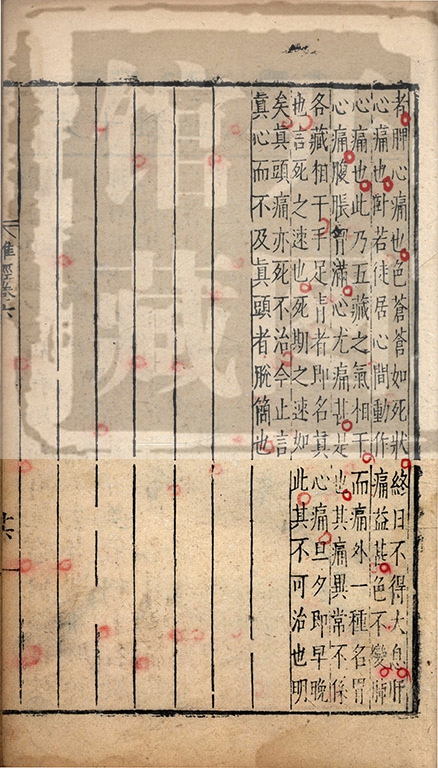 者脾心痛也色蒼蒼如死狀終日不得大息肝
心痛也針若徒居心間動作痛益甚色不變肺
心痛也此乃五藏之氣相干而痛外一種名胃
心痛腹脹胷滿心尤痛甚是也其痛異常不係
各藏相干手足青者即名眞心痛旦夕即早晚
也言死之速也死期之速如此其不可治也明
矣眞頭痛亦死不治今止言
眞心而不及眞頭者脫簡也
難經卷六
馆藏